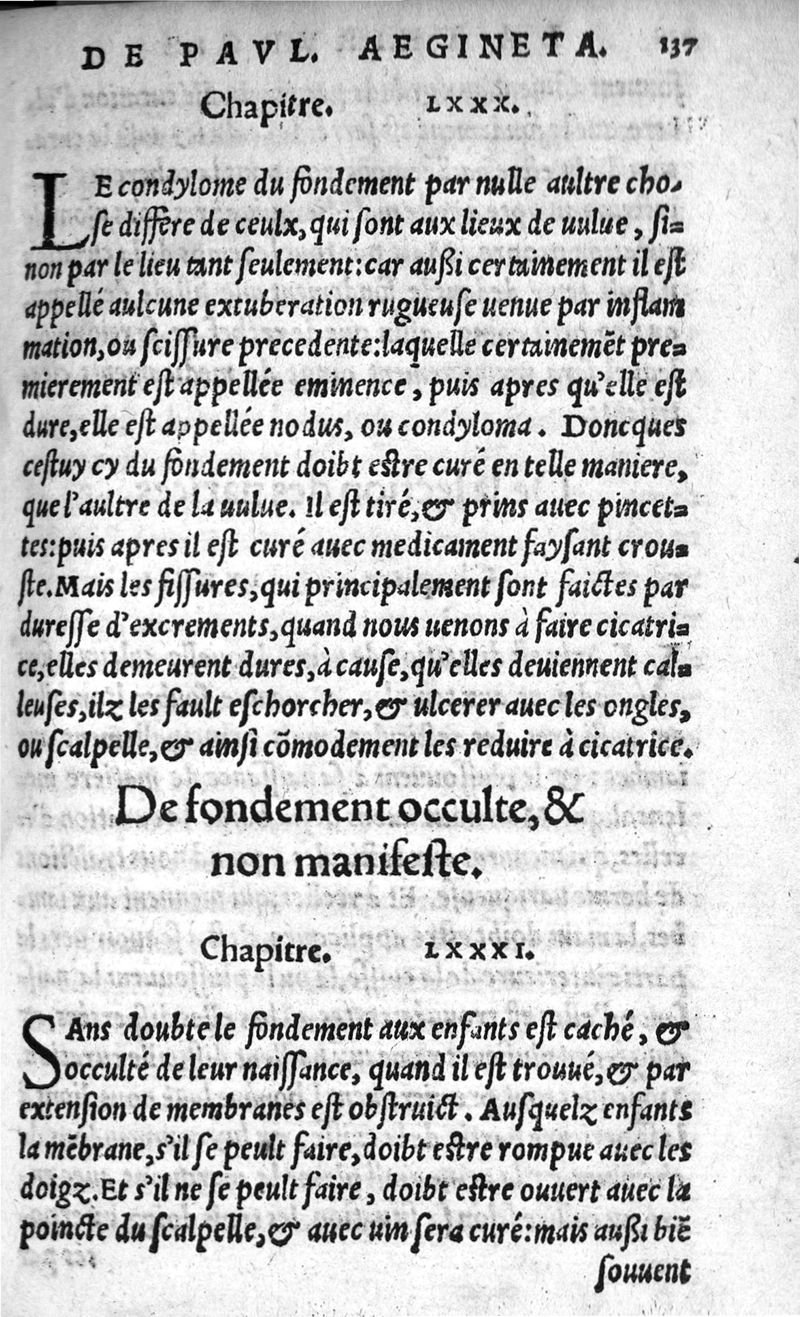 DE PAVL. AEGINETA. 137
Chapitre. LXXX.
LE condylome du fondement par nulle aultre cho-
ſe differe de ceulx, qui ſont aux lieux de uulue, ſi=
non par le lieu tant ſeulement: car außi certainement il eſt
appellé aulcune extuberation rugueuſe uenue par inflam
mation, ou ſciſſure precedente: laquelle certainemẽt pre=
mierement eſt appellée eminence, puis apres qu'elle eſt
dure, elle eſt appellée nodus, ou condyloma. Doncques
ceſtuy cy du fondement doibt eſtre curé en telle maniere,
que l'aultre de la uulue. Il eſt tiré, & prins auec pincet=
tes: puis apres il eſt curé auec medicament fayſant crou=
ſte. Mais les fiſſures, qui principalement ſont faictes par
dureſſe d'excrements, quand nous uenons à faire cicatri=
ce, elles demeurent dures, à cauſe, qu'elles deuiennent cal=
leuſes, ilz les fault eſchorcher, & ulcerer auec les ongles,
ou ſcalpelle, & ainſi cõmodement les reduire à cicatrice.
De fondement occulte, &
non manifeſte.
Chapitre. LXXXI.
SAns doubte le fondement aux enfants eſt caché, &
occulté de leur naiſſance, quand il eſt trouué, & par
extenſion de membranes eſt obſtruict. Auſquelz enfants
la mẽbrane, s'il ſe peult faire, doibt eſtre rompue auec les
doigz. Et s'il ne ſe peult faire, doibt eſtre ouuert auec la
poincte du ſcalpelle, & auec uin ſera curé: mais außi biẽ
ſouuent